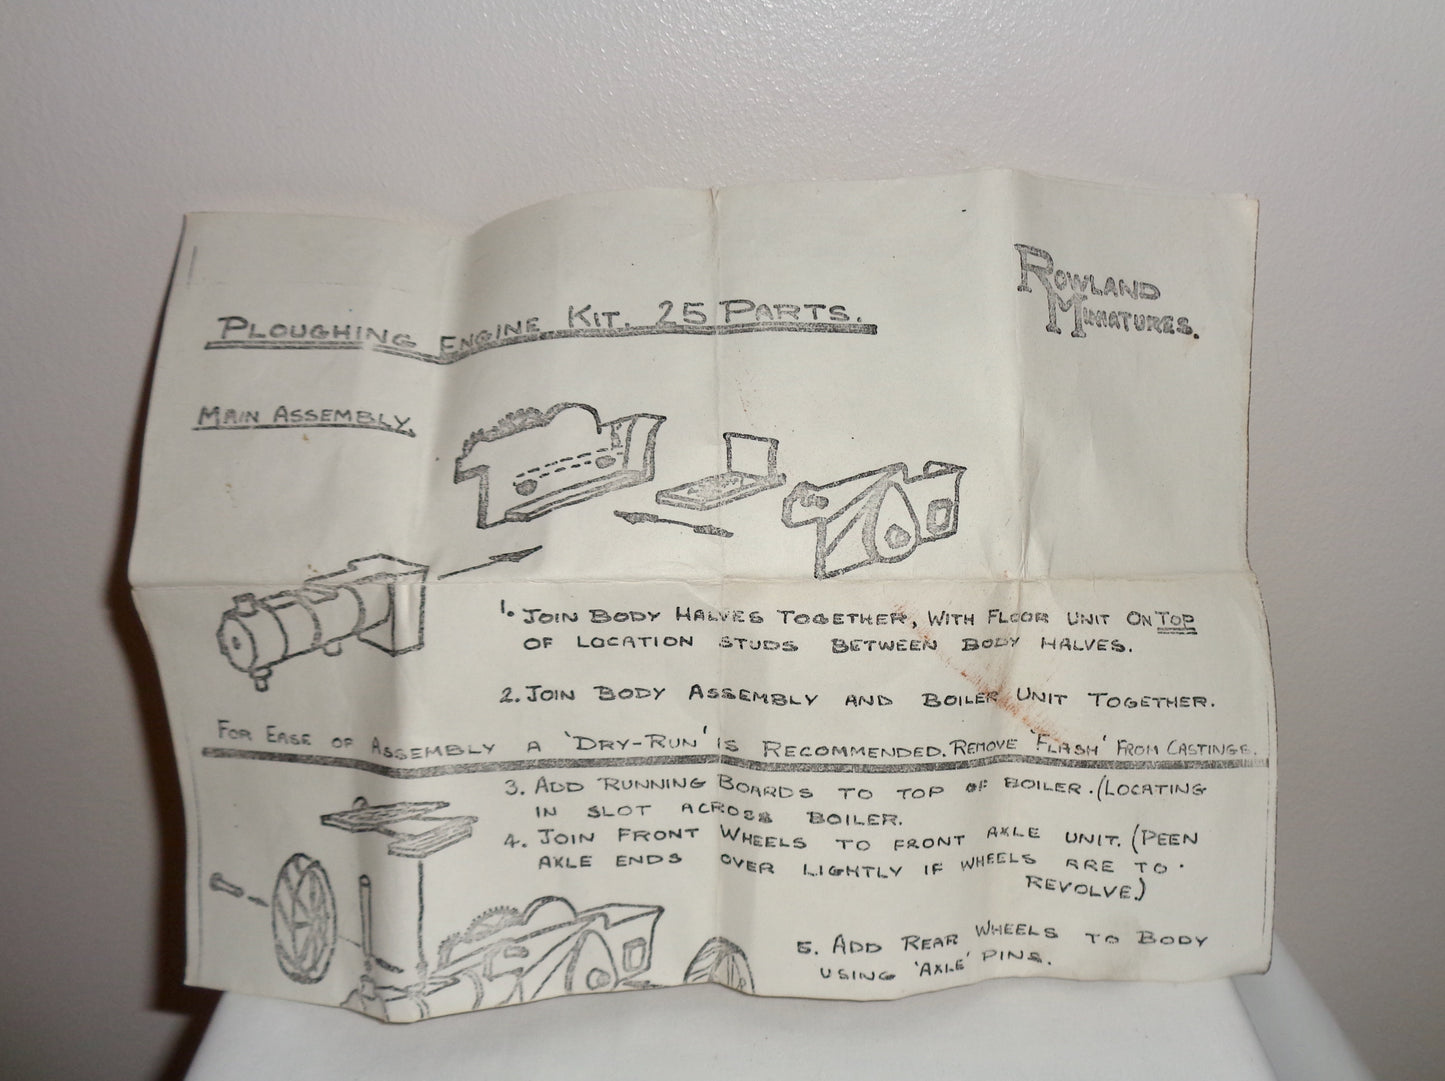 PLOUGHING ENGINE KIT. 25 PARTS.
ROWLAND
MINIATURES.
MAIN ASSEMBLY.
1. JOIN BODY HALVES TOGETHER, WITH FLOOR UNIT ON TOP
OF LOCATION STUDS BETWEEN BODY HALVES.
2. JOIN BODY ASSEMBLY AND BOILER UNIT TOGETHER.
FOR EASE OF ASSEMBLY A 'DRY-RUN' IS RECOMMENDED. REMOVE 'FLASH' FROM CASTINGS.
3. ADD RUNNING BOARDS TO TOP OF BOILER. (LOCATING
IN SLOT ACROSS BOILER.
4. JOIN FRONT WHEELS TO FRONT AXLE UNIT. (PEEN
AXLE ENDS OVER LIGHTLY IF WHEELS ARE TO
REVOLVE.)
5. ADD REAR WHEELS TO BODY
USING 'AXLE' PINS.